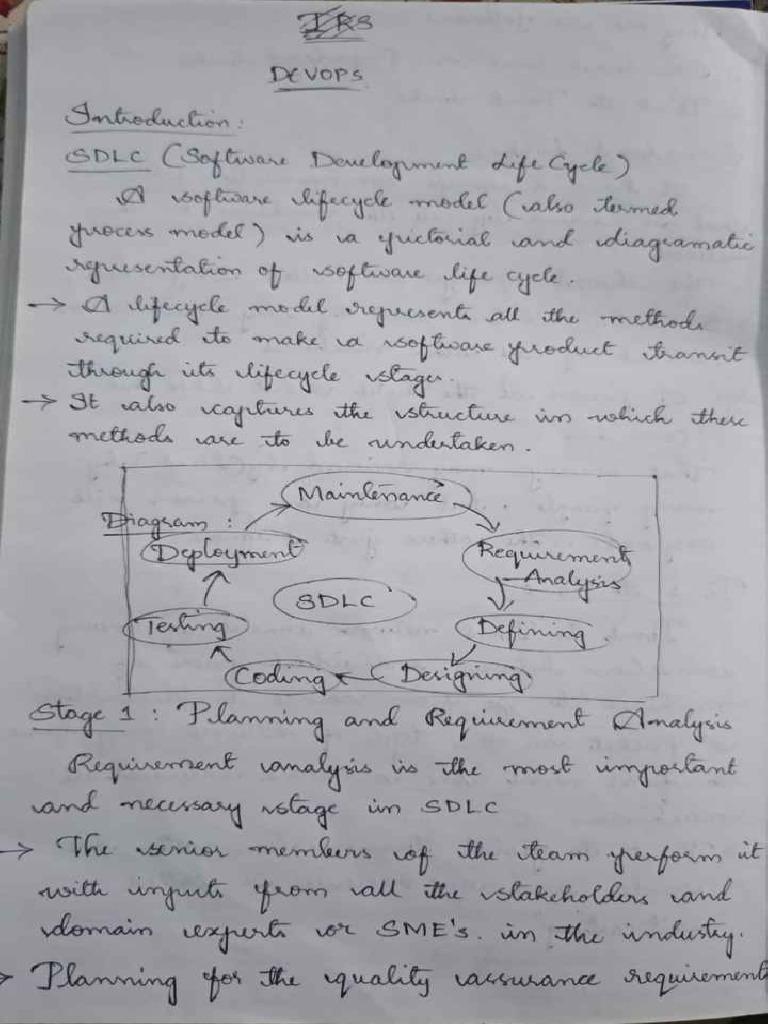 IRS
DEVOPS
Introduction:
SDLC (Software Development Life Cycle)
A software lifecycle model (also termed
process model) is a pictorial and diagramatic
representation of software life cycle.
→ A lifecycle model represents all the methods
required to make a software product transit
through its lifecycle stages.
→ It also captures the structure in which these
methods are to be undertaken.
Diagram:
Maintenance
Deployment
Requirement
Analysis
SDLC
Testing
Defining
Coding
Designing
Stage 1: Planning and Requirement Analysis
Requirement analysis is the most important
and necessary stage in SDLC
→ The senior members of the team perform it
with inputs from all the stakeholders and
domain experts or SME's. in the industry.
→ Planning for the quality assurance requirement